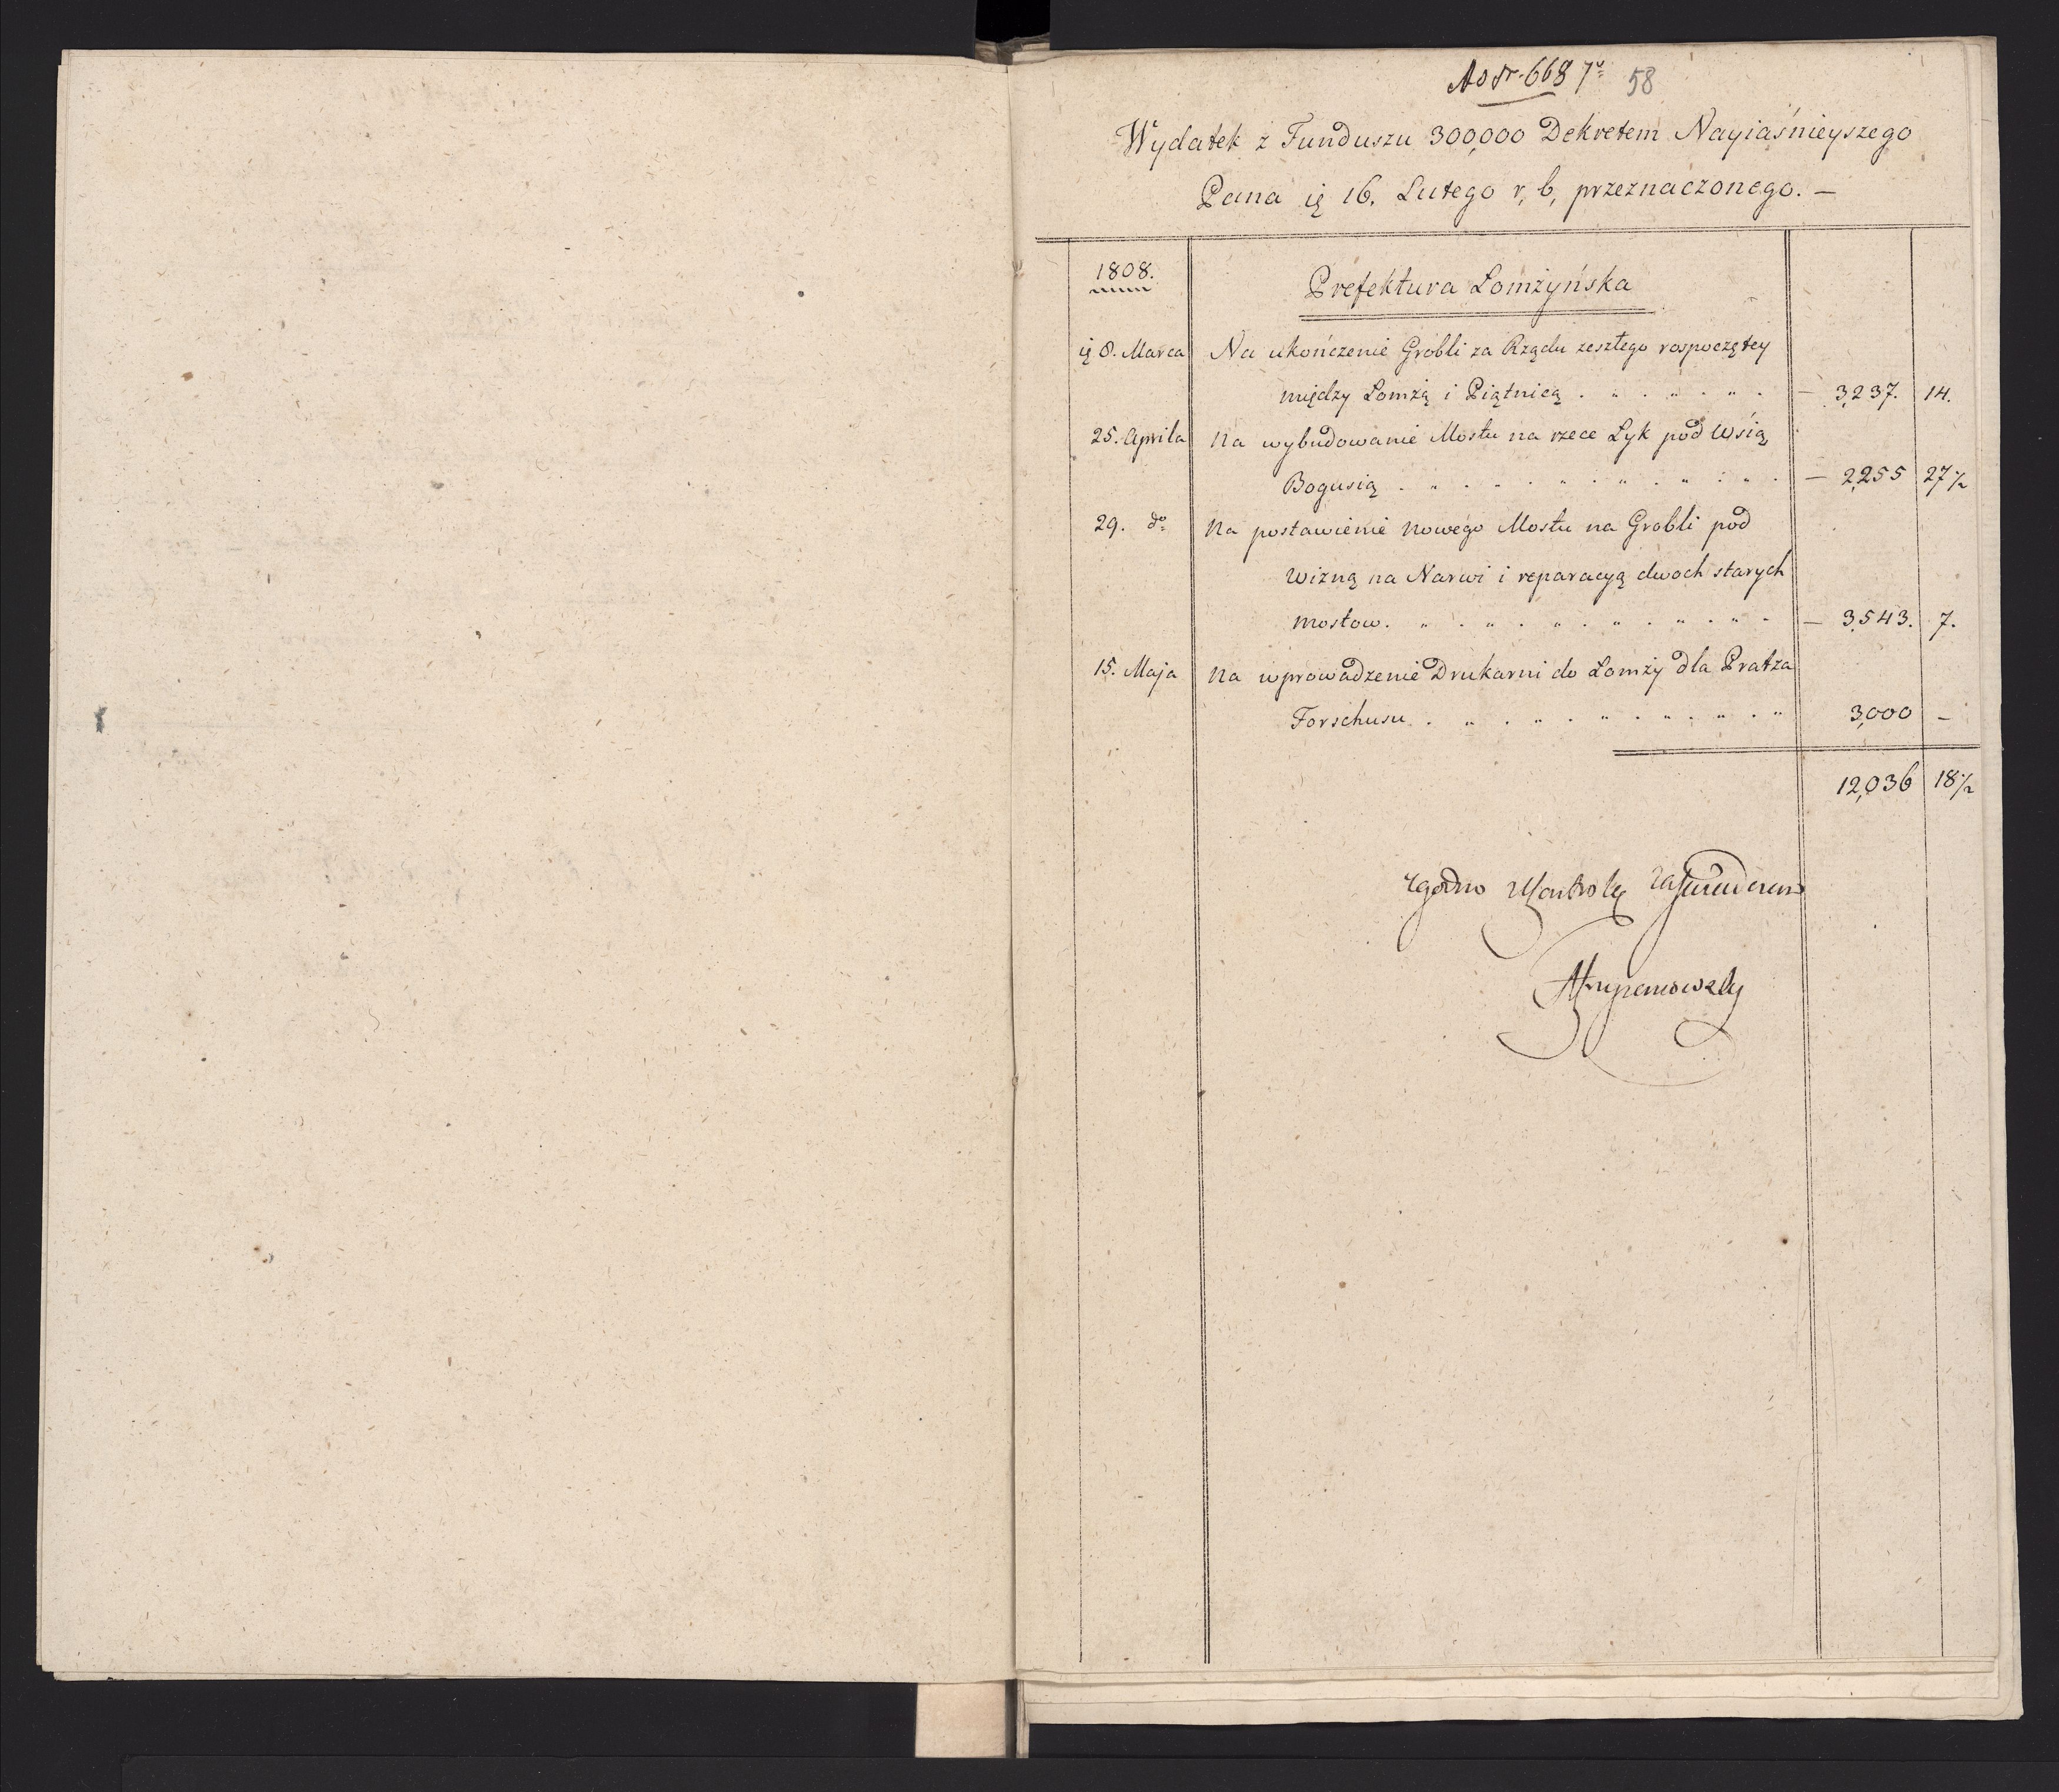 Ad Nr. 668 58
Wydatek z Funduszu 300,000 Dekretem Nayiaśnieyszego
Pana ię 16. Lutego r, b, przeznaczonego. —
1808. Prefektura Lomżyńska
ię 8. Marca Na ukończenie Grobli za Rządu zeszłego rospoczętey
między Lomżą i Piątnicą . „ . „ . „ . — 3,237. 14.
25. Aprila Na wybudowanie Mostu na rzece Lyk pod Wsią
Bogusią . „ . „ . „ . „ . „ . „ . — 2,255 27 1/2
29. do Na postawienie Nowego Mostu na Grobli pod
Wizną na Narwi i reparacyą dwoch starych
mostow. „ . „ . „ . „ . „ . „ . — 3,543. 7.
15. Maja Na wprowadzenie Drukarni do Lomży dla Pratza
Forschusu . „ . „ . „ . „ . „ . „ 3,000 —
12,036 18 1/2
Zgodno z Kontrolą